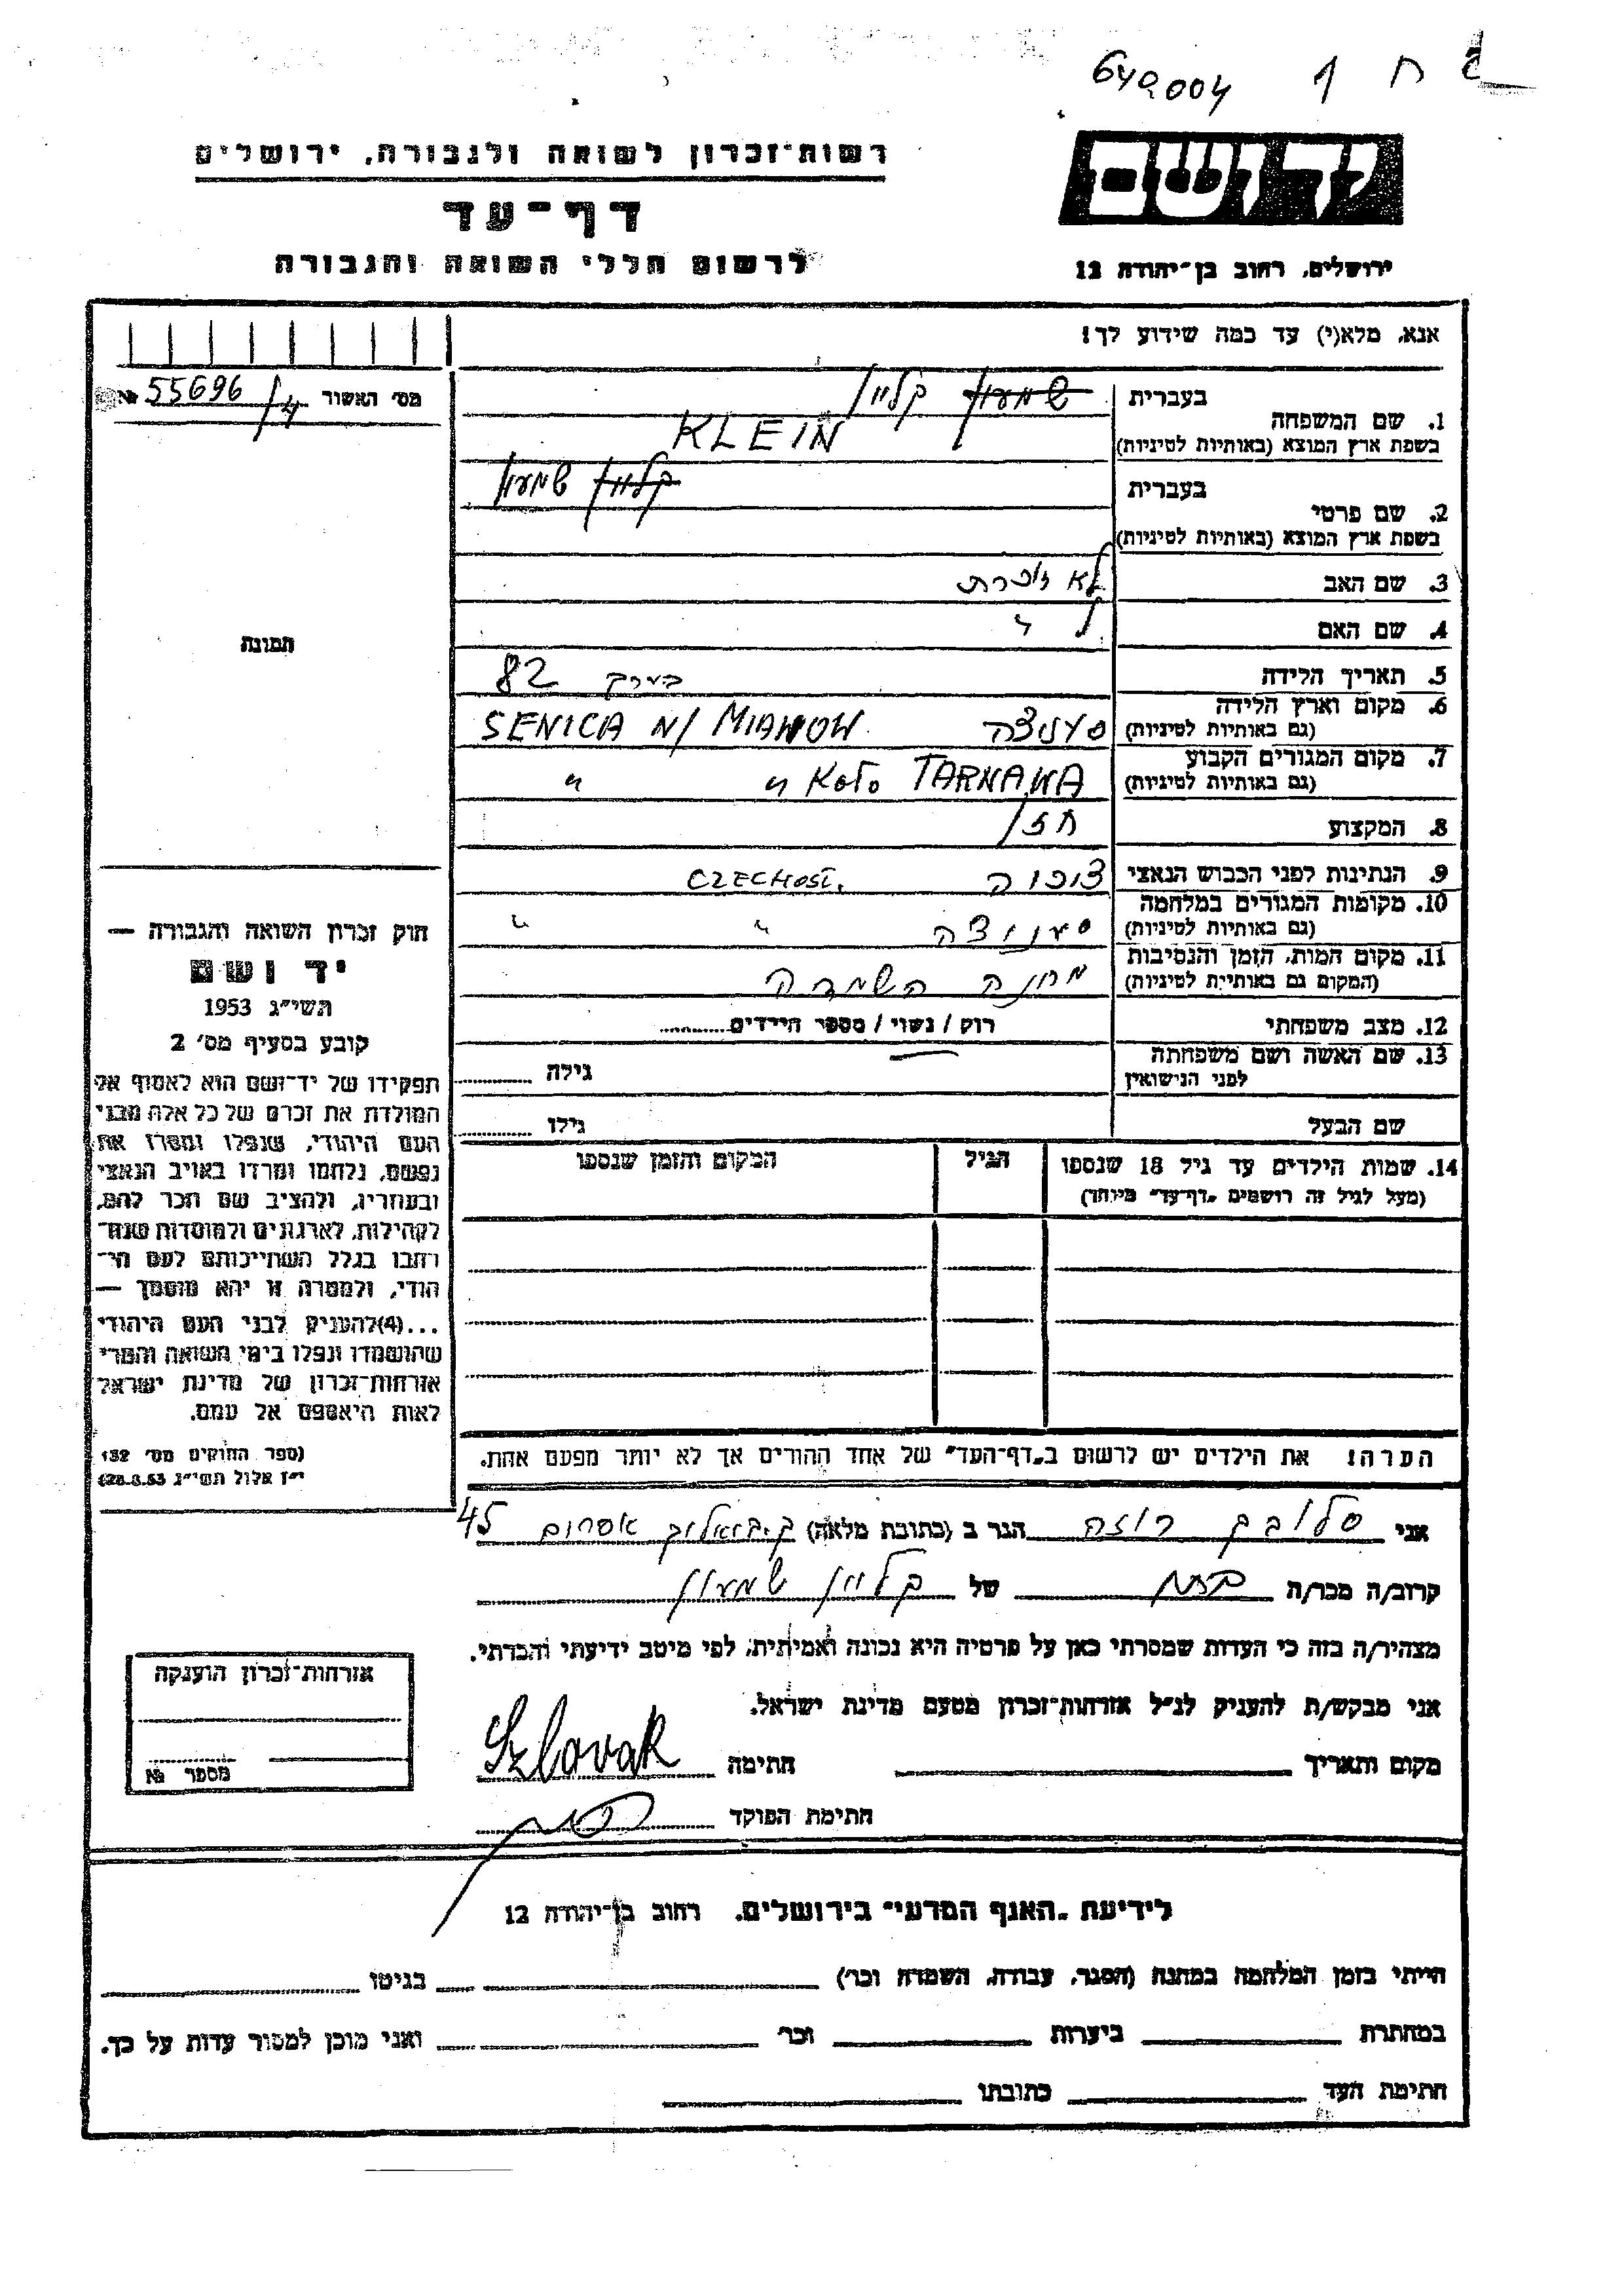 640,004 1 ח
רשות־זכרון לשואה ולגבורה, ירושלים
דף־עד
לרשום חללי השואה והגבורה
יד ושם
ירושלים, רחוב בן־יהודה 12
אנא, מלא(י) עד כמה שידוע לך!
מס׳ האשור 55696/4 №
1. שם המשפחה
בעברית שמעון קליין
בשפת ארץ המוצא (באותיות לטיניות) KLEIN
2. שם פרטי
בעברית קליין שמעון
בשפת ארץ המוצא (באותיות לטיניות)
3. שם האב לא זוכרת
4. שם האם
5. תאריך הלידה בערך 82
6. מקום וארץ הלידה
(גם באותיות לטיניות) סעניצה SENICA N/ MIAWOW
7. מקום המגורים הקבוע
(גם באותיות לטיניות) KOŁO TARNAWA " "
8. המקצוע חזן
9. הנתינות לפני הכבוש הנאצי צ׳כיה CZECHOSŁ.
10. מקומות המגורים במלחמה
(גם באותיות לטיניות) סעניצה " "
11. מקום המות, הזמן והנסיבות
(המקום גם באותיות לטיניות) מחנה השמדה
12. מצב משפחתי רווק / נשוי / מספר הילדים
13. שם האשה ושם משפחתה
לפני הנישואין גילה
שם הבעל גילו
14. שמות הילדים עד גיל 18 שנספו
(מעל לגיל זה רושמים „דף־עד" מיוחד)
הגיל
המקום והזמן שנספו
הערה! את הילדים יש לרשום ב„דף־העד" של אחד ההורים אך לא יותר מפעם אחת.
תמונה
חוק זכרון השואה והגבורה —
יד ושם
תשי״ג 1953
קובע בסעיף מס׳ 2
תפקידו של יד־ושם הוא לאסוף אל
המולדת את זכרם של כל אלה מבני
העם היהודי, שנפלו ומסרו את
נפשם, נלחמו ומרדו באויב הנאצי
ובעוזריו, ולהציב שם וזכר להם,
לקהילות, לארגונים ולמוסדות שנח־
רבו בגלל השתייכותם לעם הי־
הודי, ולמטרה זו יהא מוסמך —
...(4)להעניק לבני העם היהודי
שהושמדו ונפלו בימי השואה והמרי
אזרחות־זכרון של מדינת ישראל
לאות היאספם אל עמם.
(ספר החוקים מס׳ 132
י״ז אלול תשי״ג 28.8.53)
אני סלובק רוזה הגר ב (כתובת מלאה) ק. ביאליק אפרים 45
קרוב/ה מכר/ה בת של קליין שמעון
מצהיר/ה בזה כי העדות שמסרתי כאן על פרטיה היא נכונה ואמיתית, לפי מיטב ידיעתי והכרתי.
אני מבקש/ת להעניק לנ״ל אזרחות־זכרון מטעם מדינת ישראל.
מקום ותאריך חתימה Szlovak
חתימת הפוקד
אזרחות־זכרון הוענקה
מספר №
לידיעת „האגף המדעי" בירושלים, רחוב בן־יהודה 12
הייתי בזמן המלחמה במחנה (הסגר, עבודה, השמדה וכו׳) בגיטו
במחתרת ביערות וכו׳ ואני מוכן למסור עדות על כך.
חתימת העד כתובתו